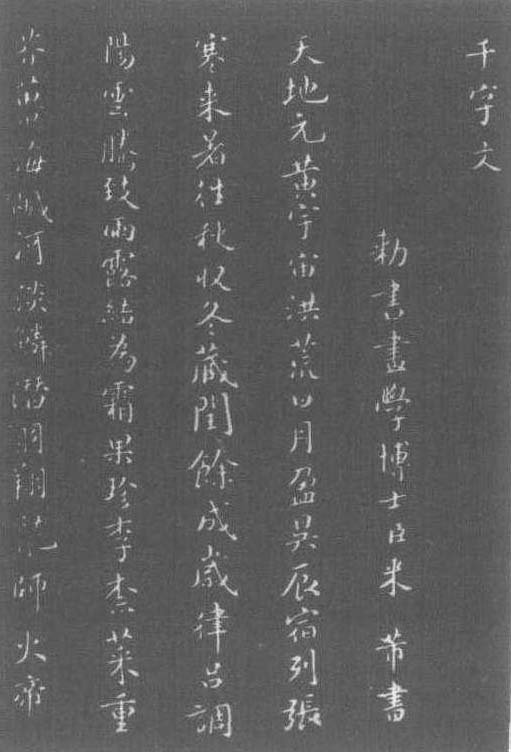 千字文
勅書畫學博士臣米芾書
天地元黄宇宙洪荒日月盈昃辰宿列張
寒来暑往秋收冬蔵閏餘成歲律吕調
陽雲騰致雨露結為霜果珍李柰菜重
芥薑海鹹河淡鱗潜羽翔龍師火帝